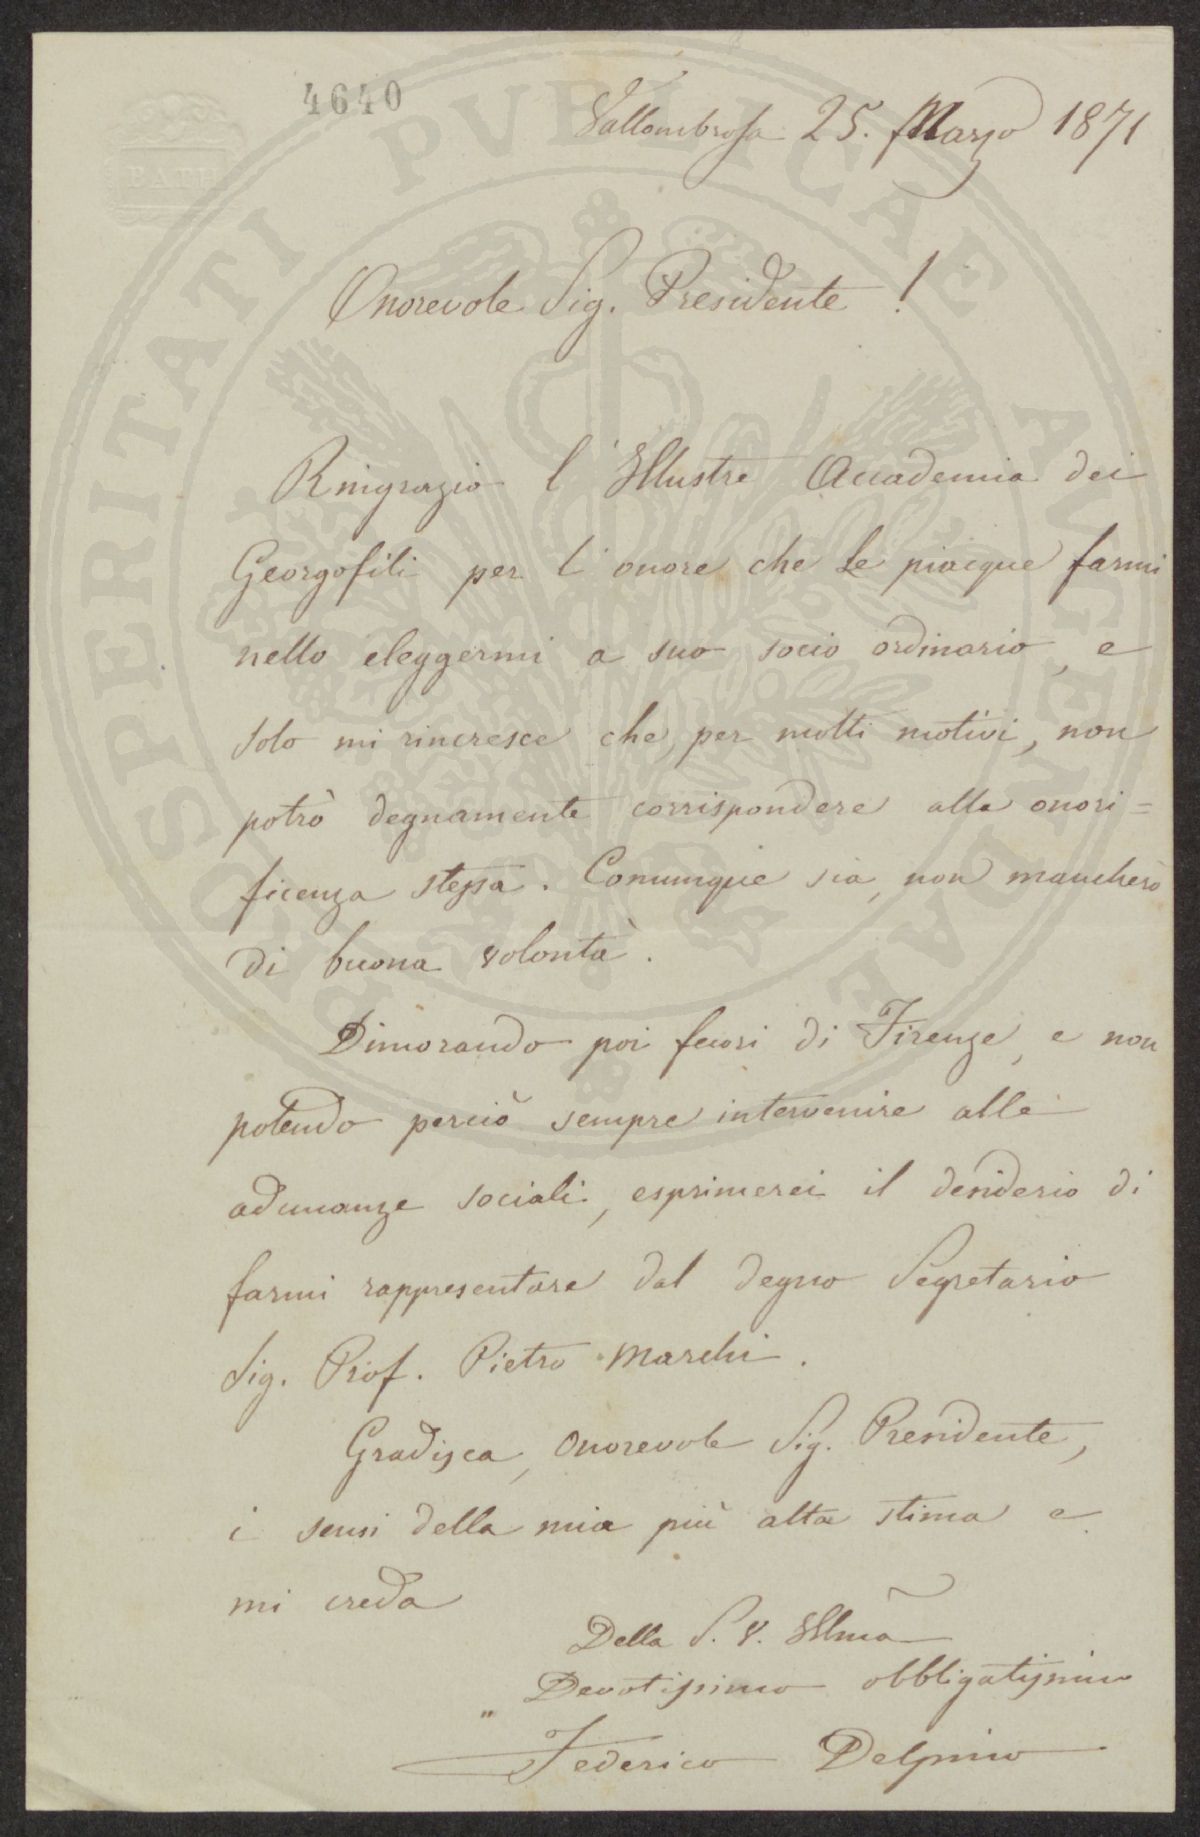 4640
Vallombrosa 25. Marzo 1871
BATH
PROSPERITATI PVBLICAE AVGENDAE
Onorevole Sig. Presidente!
Ringrazio l'Illustre Accademia dei
Georgofili per l'onore che Le piacque farmi
nello eleggermi a suo socio ordinario, e
solo mi rincresce che, per molti motivi, non
potrò degnamente corrispondere alla onori=
ficenza stessa. Comunque sia, non mancherò
di buona volontà.
Dimorando poi fuori di Firenze, e non
potendo perciò sempre intervenire alle
adunanze sociali, esprimerei il desiderio di
farmi rappresentare dal degno Segretario
Sig. Prof. Pietro Marchi.
Gradisca, Onorevole Sig. Presidente,
i sensi della mia più alta stima e
mi creda
Della S. V. Illma
Devotissimo obbligatissimo
Federico Delpino